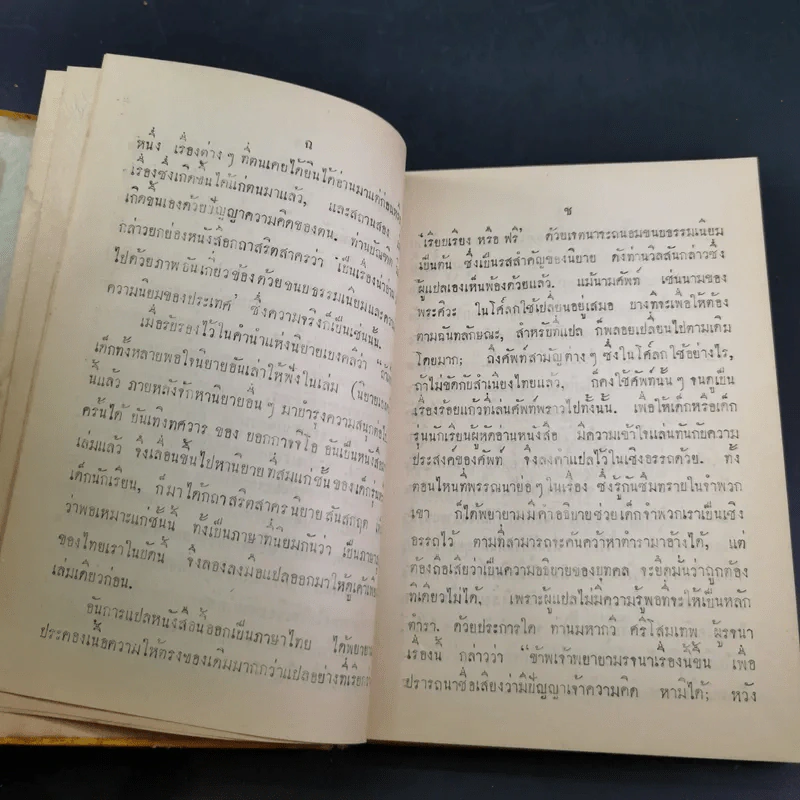 ฉ
หนึ่ง เรื่องต่าง ๆ ที่ตนเคยได้ยินได้อ่านมาแต่ก่อน
เรื่องซึ่งเกิดขึ้นได้แก่ตนมาแล้ว, และสถานสอง
เกิดขึ้นเองด้วยปัญญาความคิดของตน. ท่านบัณฑิต
กล่าวยกย่องหนังสือกถาสริตสาครว่า 'เป็นเรื่องน่าอ่าน
ไปด้วยภาพอันเกี่ยวข้องด้วยขนบธรรมเนียมและความ
ความนิยมของประเทศ' ซึ่งความจริงก็เป็นเช่นนั้น.
เมื่อรับรองไว้ในคำนำแห่งนิยายเบงคลีว่า
เด็กทั้งหลายพอใจนิยายอันเล่าให้ฟังในเล่ม (นิยายเบงคลี
นี้แล้ว ภายหลังจักหานิยายอื่น ๆ มาบำรุงความสนุกต่อไป
ครั้นได้ ยันเทิงทศวาร ของ ยอกกาจจิโอ อันเป็นหนังสือ
เล่มแล้ว จึงเลื่อนขึ้นไปหานิยายที่สมแก่ชั้นของเด็กรุ่น
เด็กนักเรียน, ก็มาได้กถาสริตสาครนิยายสันสกฤต
ว่าพอเหมาะแก่ชั้นนี้ ทั้งเป็นภาษาที่นิยมกันว่า เป็นภาษา
ของไทยเราในบัดนี้ จึงลองลงมือแปลออกมาให้ดูเค้า
เล่มเดียวก่อน.
อันการแปลหนังสือนี้ออกเป็นภาษาไทย ได้พยายาม
ประคองเนื้อความให้ตรงของเดิมมากกว่าแปลอย่างที่เรียก
ช
'เรียบเรียง หรือ ฟรี' ด้วยเจตนาจะถนอมขนบธรรมเนียม
เป็นต้น ซึ่งเป็นรสสำคัญของนิยาย ดังท่านวิลสันกล่าวซึ่ง
ผู้แปลเองเห็นพ้องด้วยแล้ว. แม้นามศัพท์ เช่นนามของ
พระศิวะ ในโศลกใช้เปลี่ยนอยู่เสมอ บางทีจะเพื่อให้ต้อง
ตามฉันทลักษณะ, สำหรับที่แปล ก็พลอยเปลี่ยนไปตามเดิม
โดยมาก; ถึงศัพท์สามัญต่าง ๆ ซึ่งในโศลกใช้อย่างไร,
ถ้าไม่ขัดกับสำเนียงไทยแล้ว, ก็คงใช้ศัพท์นั้น ๆ จนดูเป็น
เรื่องร้อยแก้วที่เล่นศัพท์พราวไปทั้งนั้น. เพื่อให้เด็กหรือเด็ก
รุ่นนักเรียนผู้หัดอ่านหนังสือ มีความเข้าใจแล่นทันกับความ
ประสงค์ของศัพท์ จึงลงคำแปลไว้ในเชิงอรรถด้วย. ทั้ง
ตอนไหนที่พรรณนาย่อ ๆ ในเรื่อง ซึ่งรู้กันซึมทราบในจำพวก
เขา ก็ได้พยายามมีคำอธิบายช่วยเด็กจำพวกเราเป็นเชิง
อรรถไว้ ตามที่สามารถจะค้นคว้าหาตำรามาอ้างได้, แต่
ต้องถือเสียว่าเป็นความอธิบายของบุคคล จะยึดมั่นว่าถูกต้อง
ทีเดียวไม่ได้, เพราะผู้แปลไม่มีความรู้พอที่จะให้เป็นหลัก
ตำรา. ด้วยประการใด ท่านมหากวี ศรีโสมเทพ ผู้รจนา
เรื่องนี้ กล่าวว่า "ข้าพเจ้าพยายามรจนาเรื่องนี้ขึ้น เพื่อ
ปรารถนาชื่อเสียงว่ามีปัญญาเจ้าความคิด หามิได้; หวัง